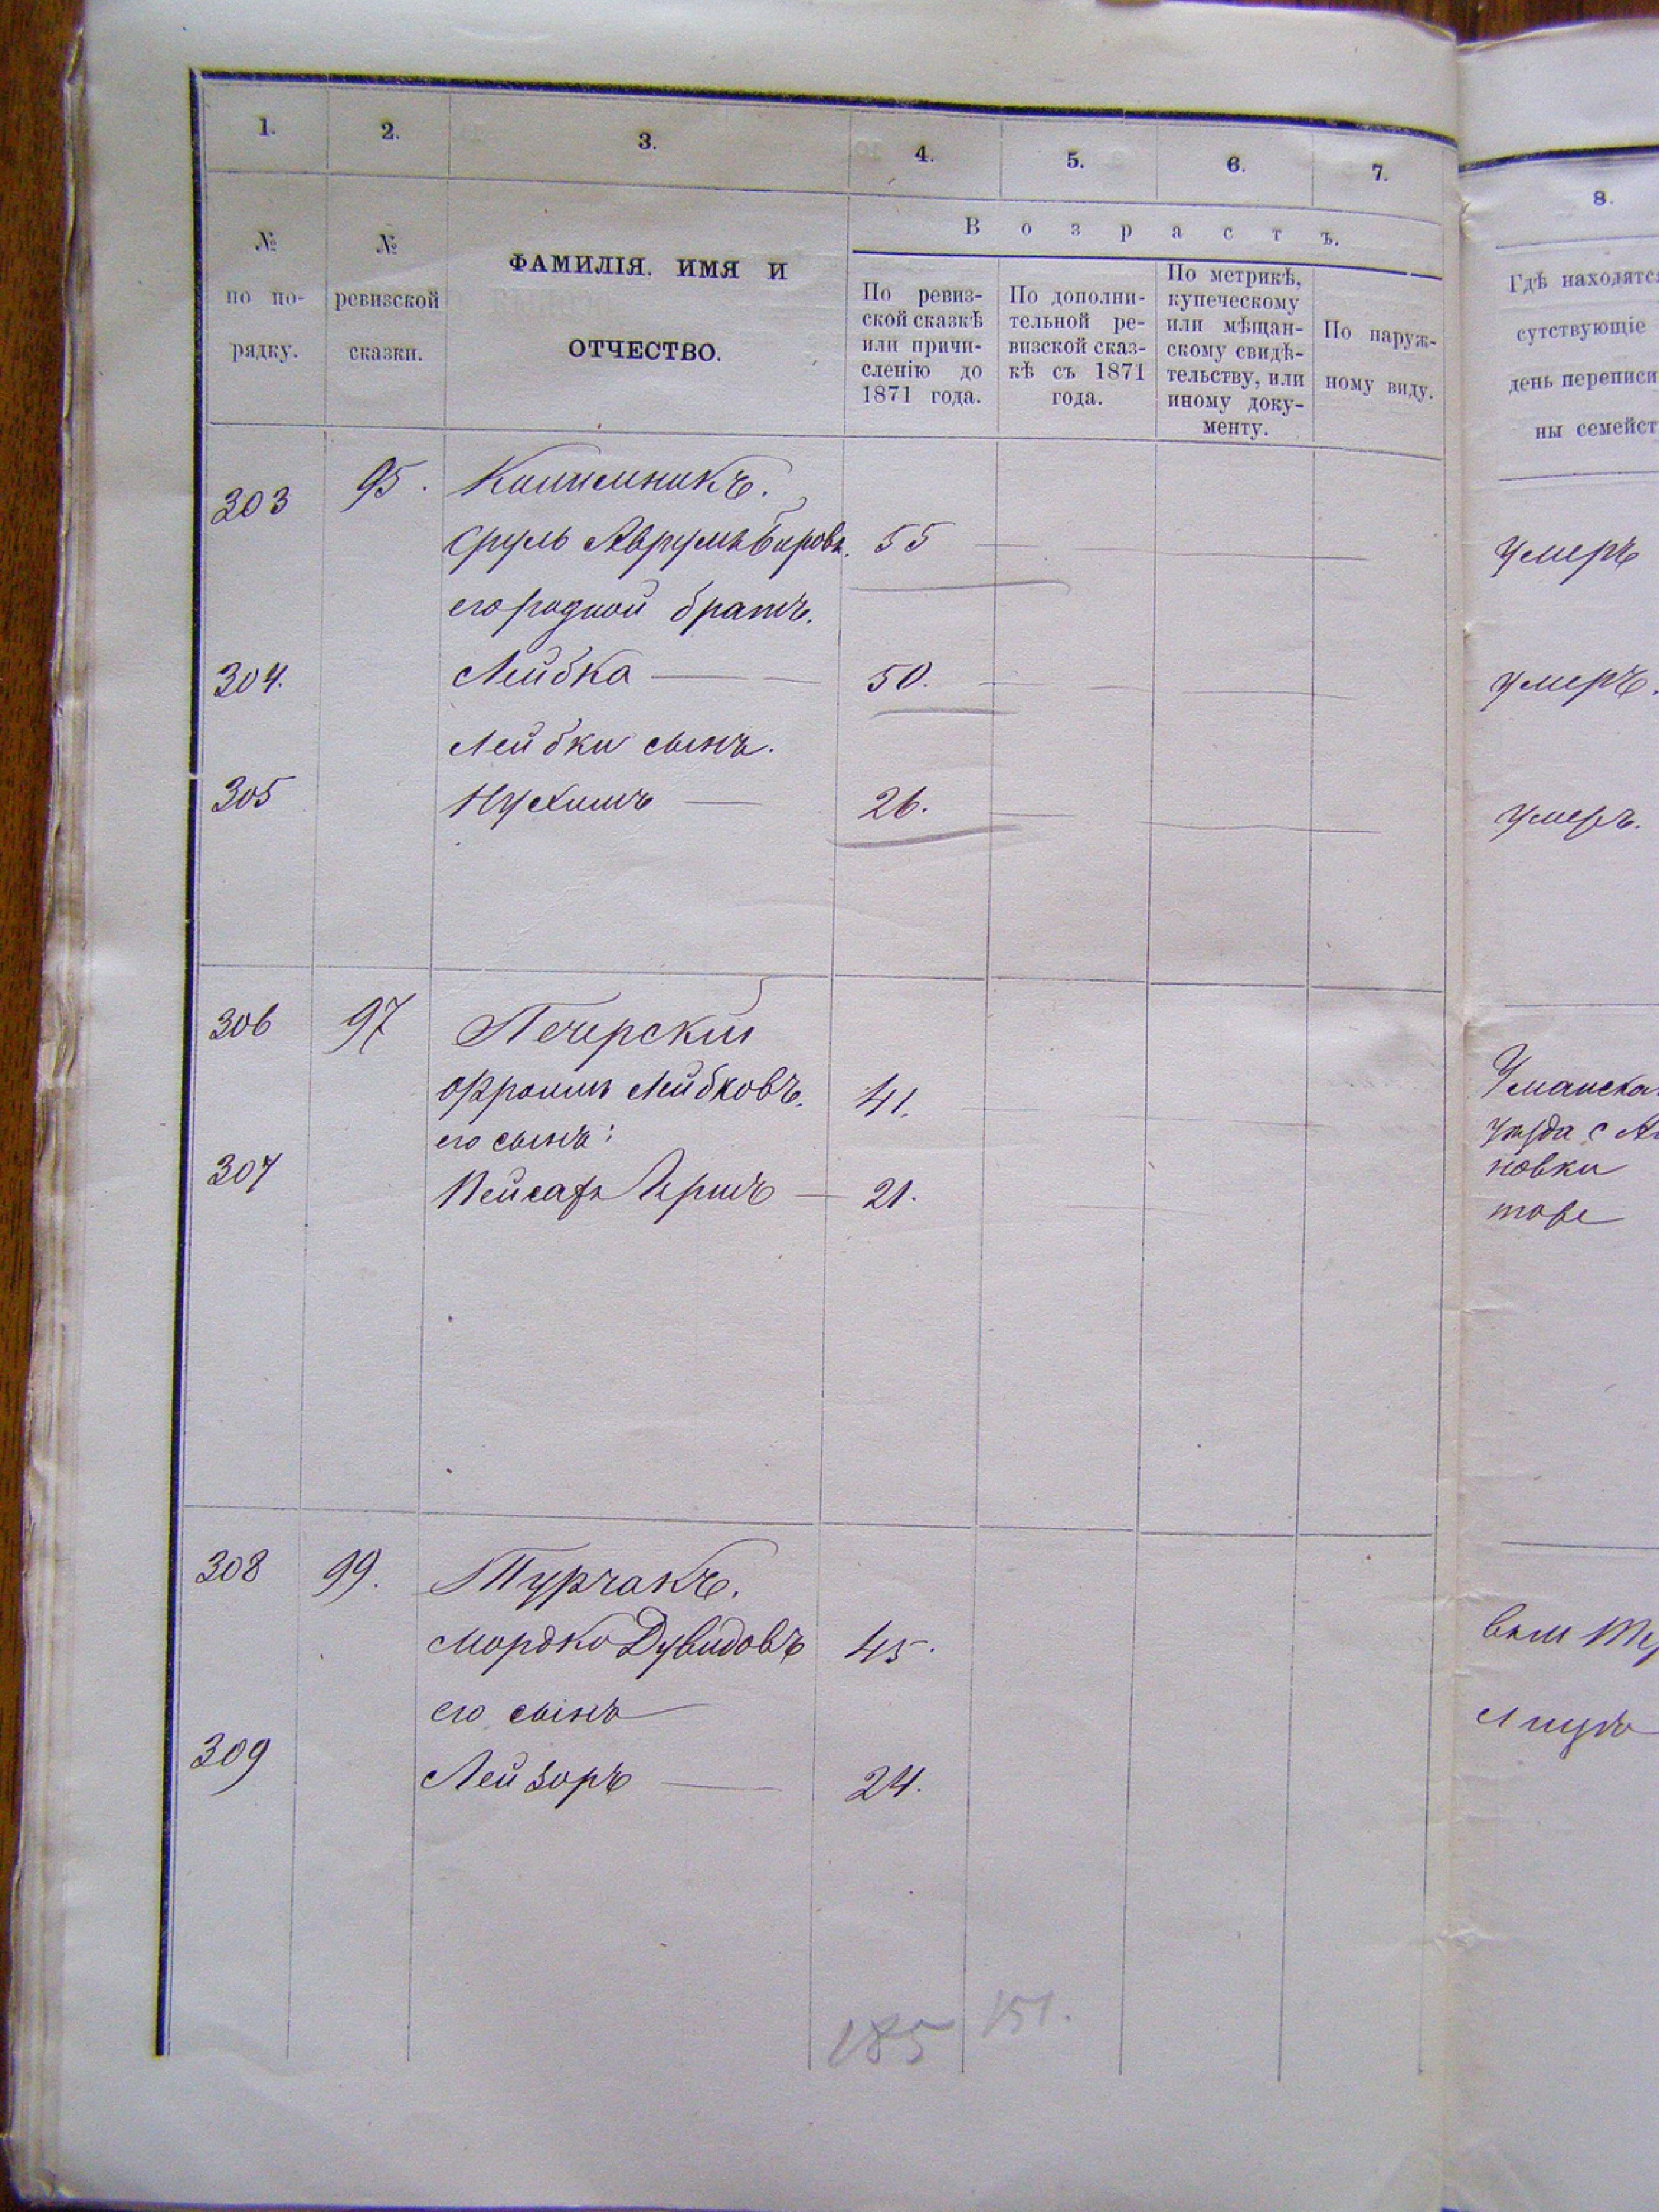 1. 2. 3. 4. 5. 6. 7.
8.
№ по по-рядку.
№ ревизской сказки.
ФАМИЛІЯ. ИМЯ И
ОТЧЕСТВО.
Возрастъ.
По ревиз-
ской сказкѣ
или причи-
сленію до
1871 года.
По дополни-
тельной ре-
визской сказ-
кѣ съ 1871
года.
По метрикѣ,
купеческому
или мѣщан-
скому свидѣ-
тельству, или
иному доку-
менту.
По наруж-
ному виду.
Гдѣ находятся
сутствующіе
день переписи
ны семейст
303 95. Килимникъ.
Сруль Аврумъ Беровъ. 55 умеръ
его родной братъ.
304. Лейбка 50. умеръ.
Лейбки сынъ.
305 Нухимъ 26. умеръ.
306 97 Печерскій
Фроимъ Лейбковъ. 41. Уманска
его сынъ: уезда с
307 Пейсахъ Гершъ 21. новки
тове
308 99. Турчакъ.
Мордко Дувидовъ 45.
его сынъ
309 Лейзоръ 24.
185 151.